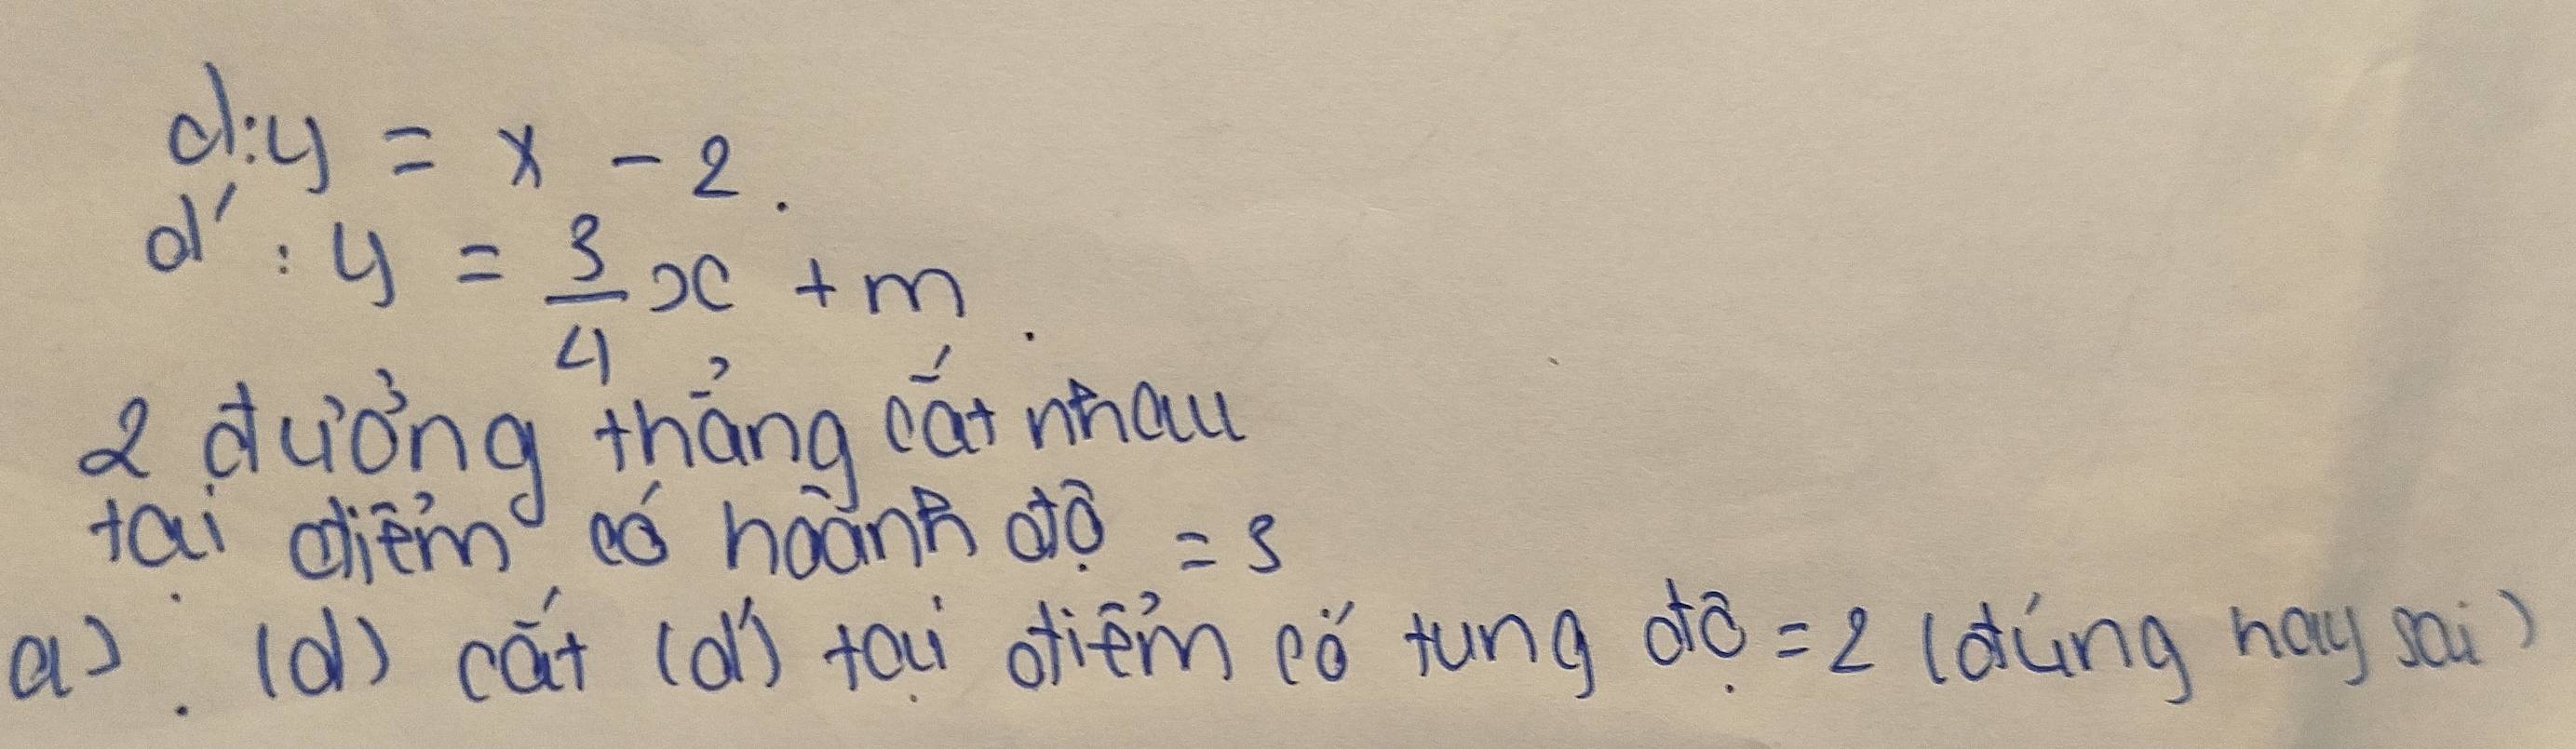 d: y = x - 2.
d' : y = 3/4 x + m.
2 đường thẳng cắt nhau
tại điểm có hoành độ = 3
a) (d) cắt (d') tại điểm có tung độ = 2 (đúng hay sai)